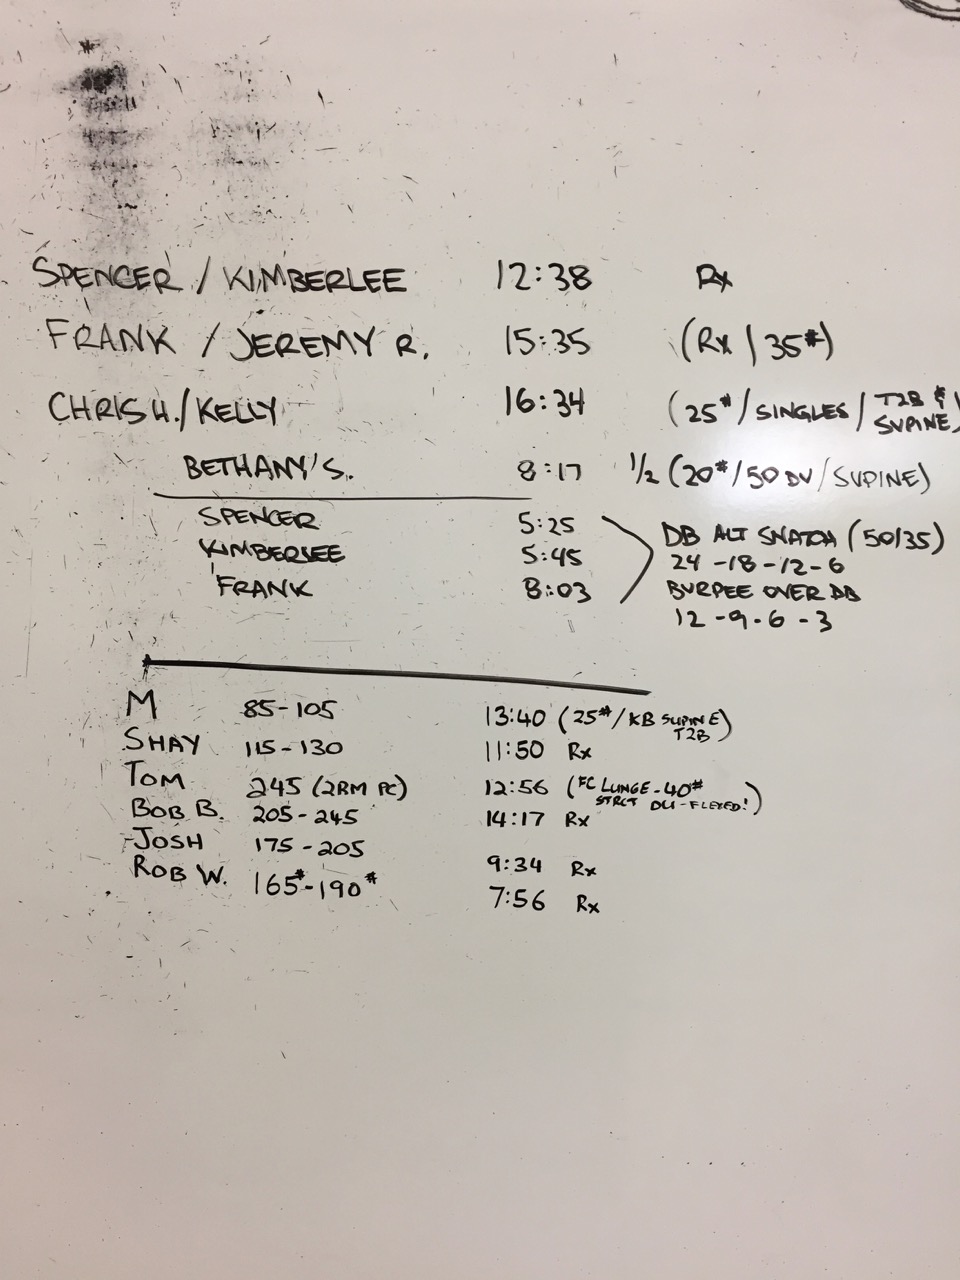 SPENCER / KIMBERLEE 12:38 Rx
FRANK / JEREMY R. 15:35 (Rx / 35#)
CHRIS H. / KELLY 16:34 (25# / SINGLES / T2B & SUPINE)
BETHANY'S. 8:17 1/2 (20# / 50 DU / SUPINE)
SPENCER 5:25 DB ALT SNATCH (50/35)
KIMBERLEE 5:45 24 - 18 - 12 - 6
FRANK 8:03 BURPEE OVER DB
12 - 9 - 6 - 3
M 85-105 13:40 (25# / KB SUPINE T2B)
SHAY 115-130 11:50 Rx
TOM 245 (2RM PC) 12:56 (FC LUNGE-40#
STRCT DU-FLEXED!)
BOB B. 205-245 14:17 Rx
JOSH 175-205 9:34 Rx
ROB W. 165#-190# 7:56 Rx